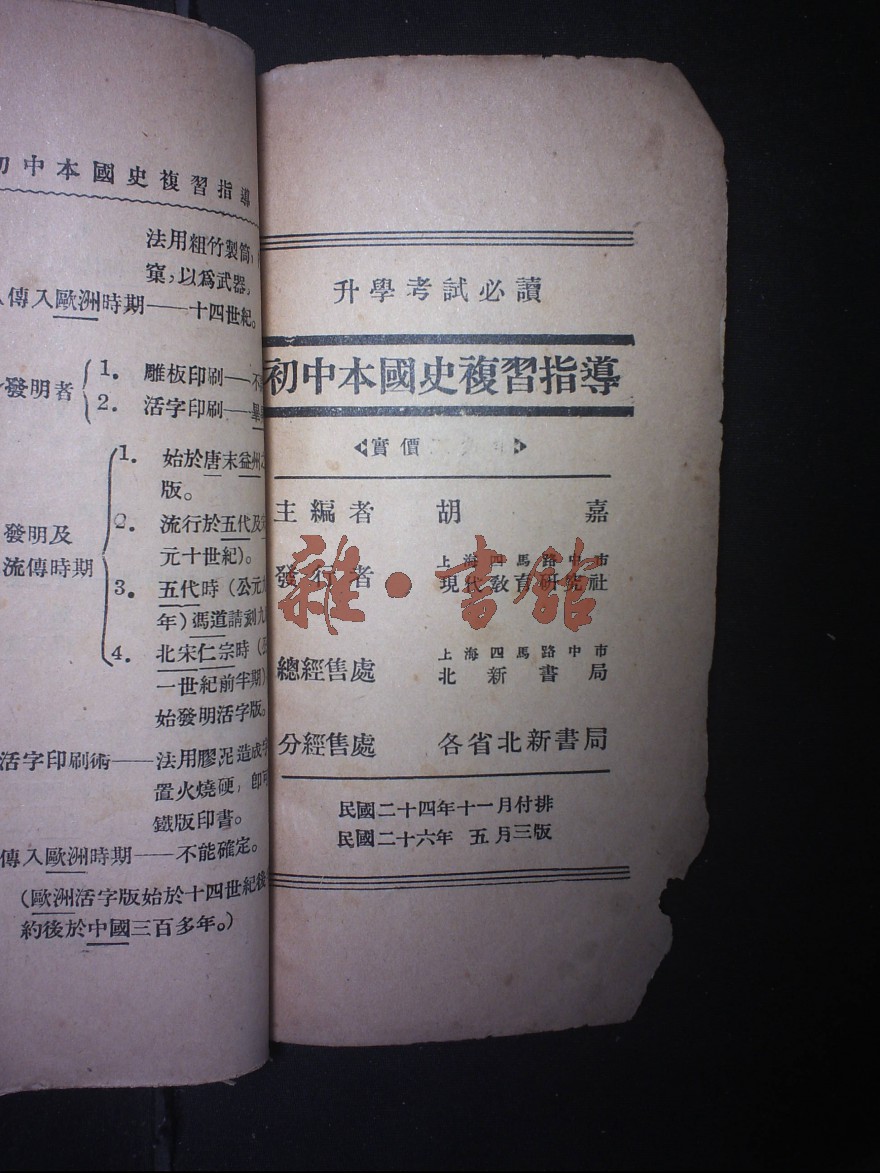 初中本國史複習指導
法用粗竹製筒,
窠,以爲武器。
傳入歐洲時期——十四世紀。
發明者
1. 雕板印刷——不
2. 活字印刷——畢
發明及
流傳時期
1. 始於唐末益州
版。
2. 流行於五代及
元十世紀)。
3. 五代時(公元九
年)馮道請刻九
4. 北宋仁宗時(
一世紀前半期)
始發明活字版。
活字印刷術——法用膠泥造成字
置火燒硬,卽可
鐵版印書。
傳入歐洲時期——不能確定。
(歐洲活字版始於十四世紀後
約後於中國三百多年。)
升學考試必讀
初中本國史複習指導
實價
主編者 胡嘉
發行者 上海四馬路中市
現代敎育硏究社
總經售處 上海四馬路中市
北新書局
分經售處 各省北新書局
民國二十四年十一月付排
民國二十六年 五月三版
雜·書館